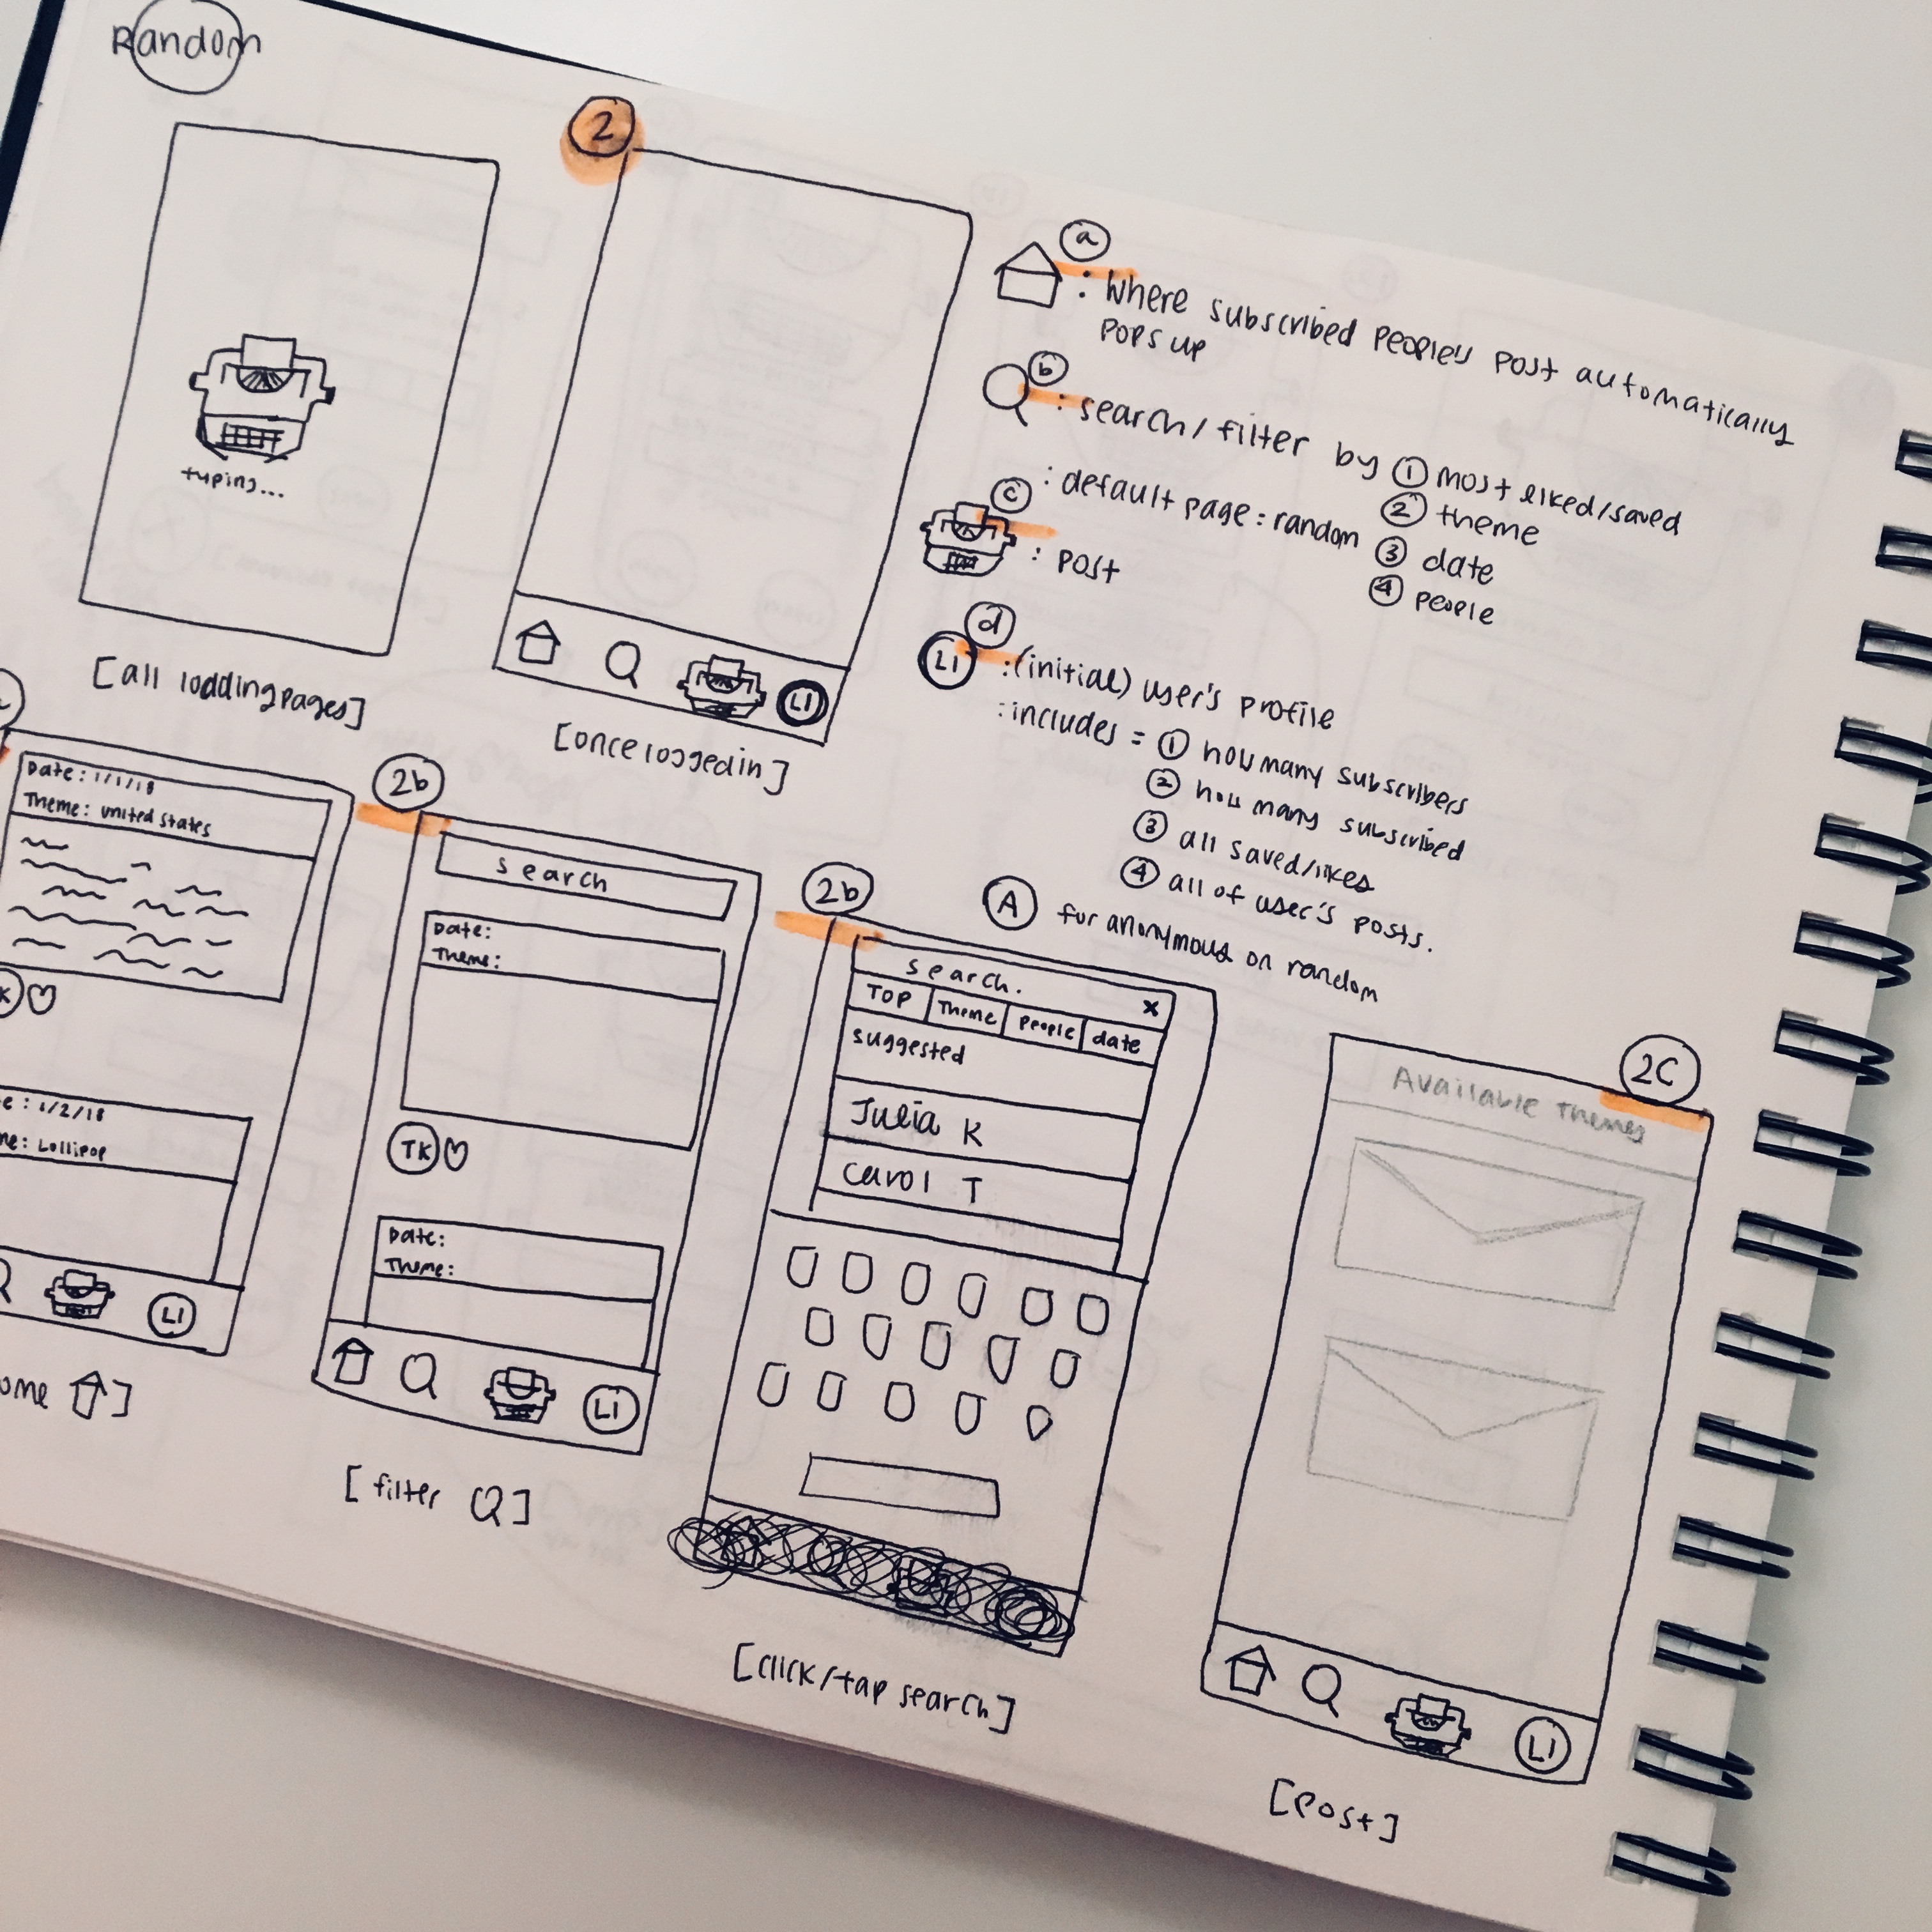 Random
typing...
[all loddingpages]
2
LI
[once loggedin]
a
: Where subscribed people's post automatically
pops up
b
: search/filter by ① most liked/saved
② theme
③ date
④ people
: default page: random
c
: post
d
LI
: (initial) user's profile
: includes = ① how many subscribers
② how many subscribed
③ all saved/likes
④ all of user's posts.
A for anonymous on random
Date: 1/1/18
Theme: united states
e: 1/2/18
me: Lollipop
LI
ome ]
2b
search
Date:
Theme:
TK
Date:
Theme:
LI
[filter ]
2b
search. x
TOP Theme People date
suggested
Julia K
Carol T
[click/tap search]
2C
Available Themes
LI
[Post]